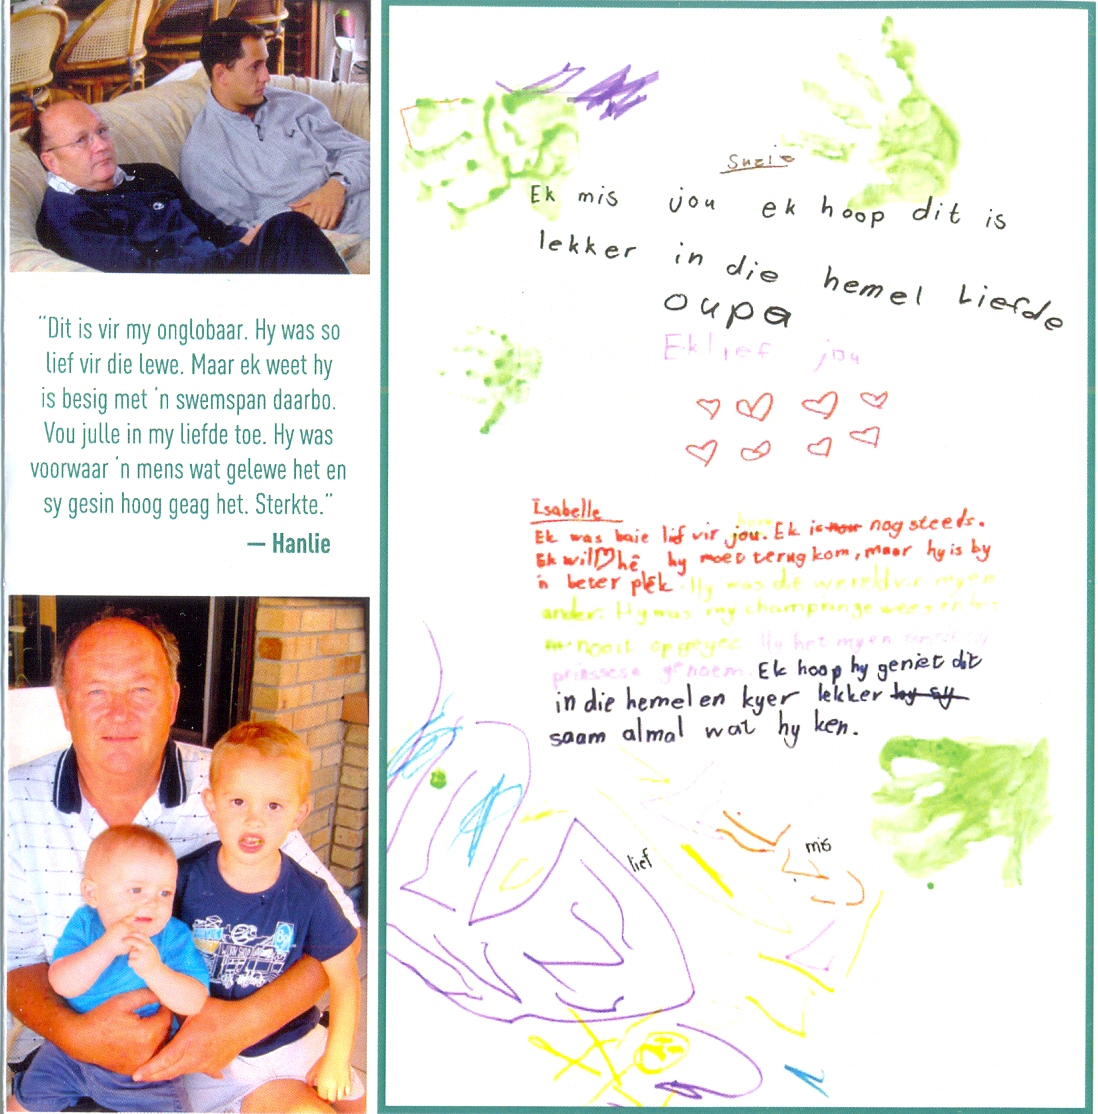 "Dit is vir my onglobaar. Hy was so
lief vir die lewe. Maar ek weet hy
is besig met 'n swemspan daarbo.
Vou julle in my liefde toe. Hy was
voorwaar 'n mens wat gelewe het en
sy gesin hoog geag het. Sterkte."
— Hanlie
Suzie
Ek mis jou ek hoop dit is
lekker in die hemel Liefde
oupa
Ek lief jou
Isabelle
Ek was baie lief vir jou. Ek is nog steeds.
Ek wil hê hy moet terug kom, maar hy is by
'n beter plek. Hy was die wereld vir my en
ander. Hy was my
nooit opgegee. Hy het my en
prinssese genoem. Ek hoop hy geniet dit
in die hemel en kyer lekker hy sy
saam almal wat hy ken.
lief
mis